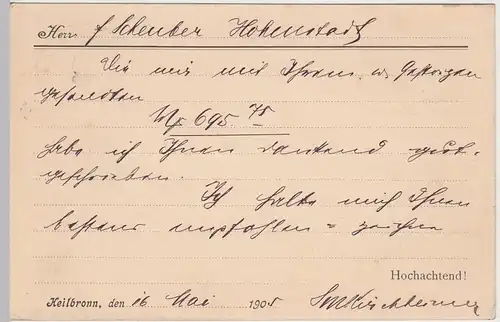 Herrn J Scheuber Hohenstadt
Die mir mit Ihrem w. Gestrigen
gesandten
Mk 695.75
habe ich Ihnen dankend gut-
geschrieben.
Ich halte mich Ihnen
bestens empfohlen & zeichne
Hochachtend!
Heilbronn, den 16 Mai 1905